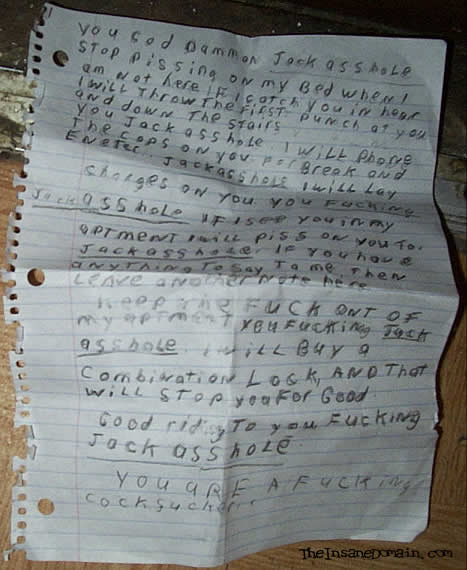 You God Dammon Jack asshole
Stop Pissing on my Bed when I
am Not here If I catch you in hear
I will Throw The First Punch at you
and you down The stairs
The Jack asshole. I will Phone
The cops on you. For Break and
Eneter. Jackasshole I will Lay
charges on you. you Fucking
Jack asshole If I see you in my
aptment I will piss on you To.
Jackasshole. If you have
anything To say To me Then
Leave another Note here
Keep The FUCK ONT OF
my aptment you Fucking Jack
asshole. I will Buy a
Combination Lock, AND That
will STOP you For Good.
Good riding To you Fucking
Jack asshole.
YOU ARE A FUCKING
cocksucker..
TheInsaneDomain.com